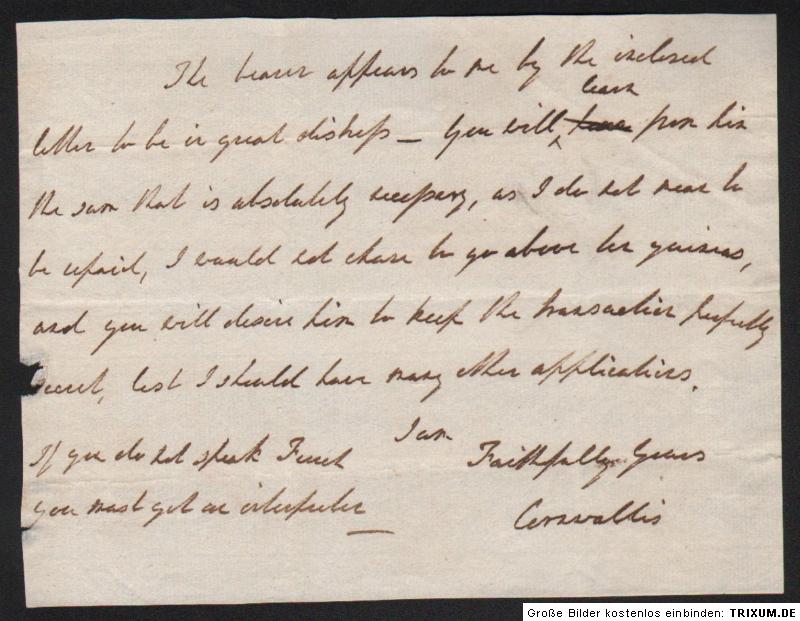 The bearer appears to me by the inclosed
learn
letter to be in great distress – You will ^ from him
the sum that is absolutely necessary, as I do not mean to
be repaid, I would not chuse to go above ten guineas,
and you will desire him to keep the transaction perfectly
secret, lest I should have many other applications.
I am
If you do not speak French
Faithfully Yours
you must get an interpreter
Cornwallis
Große Bilder kostenlos einbinden: TRIXUM.DE